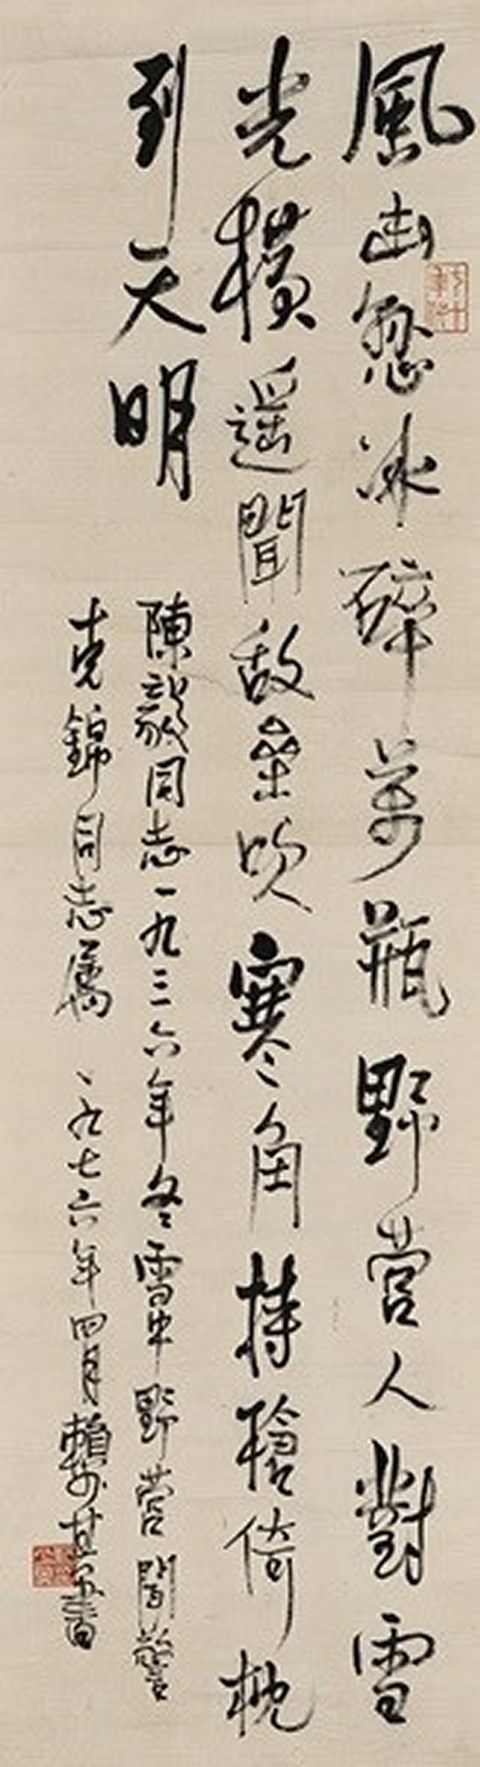 風击悬冰碎萬瓶野营人對雪
光橫遥聞敌垒吹寒角持槍倚枕
到天明
陳毅同志一九三六年冬雪中野营聞警
克錦同志属 一九七六年四月賴少其書